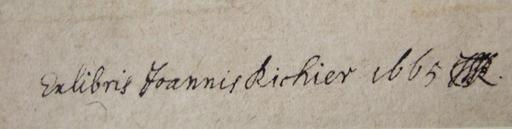 Ex libris Joannis Richier 1665